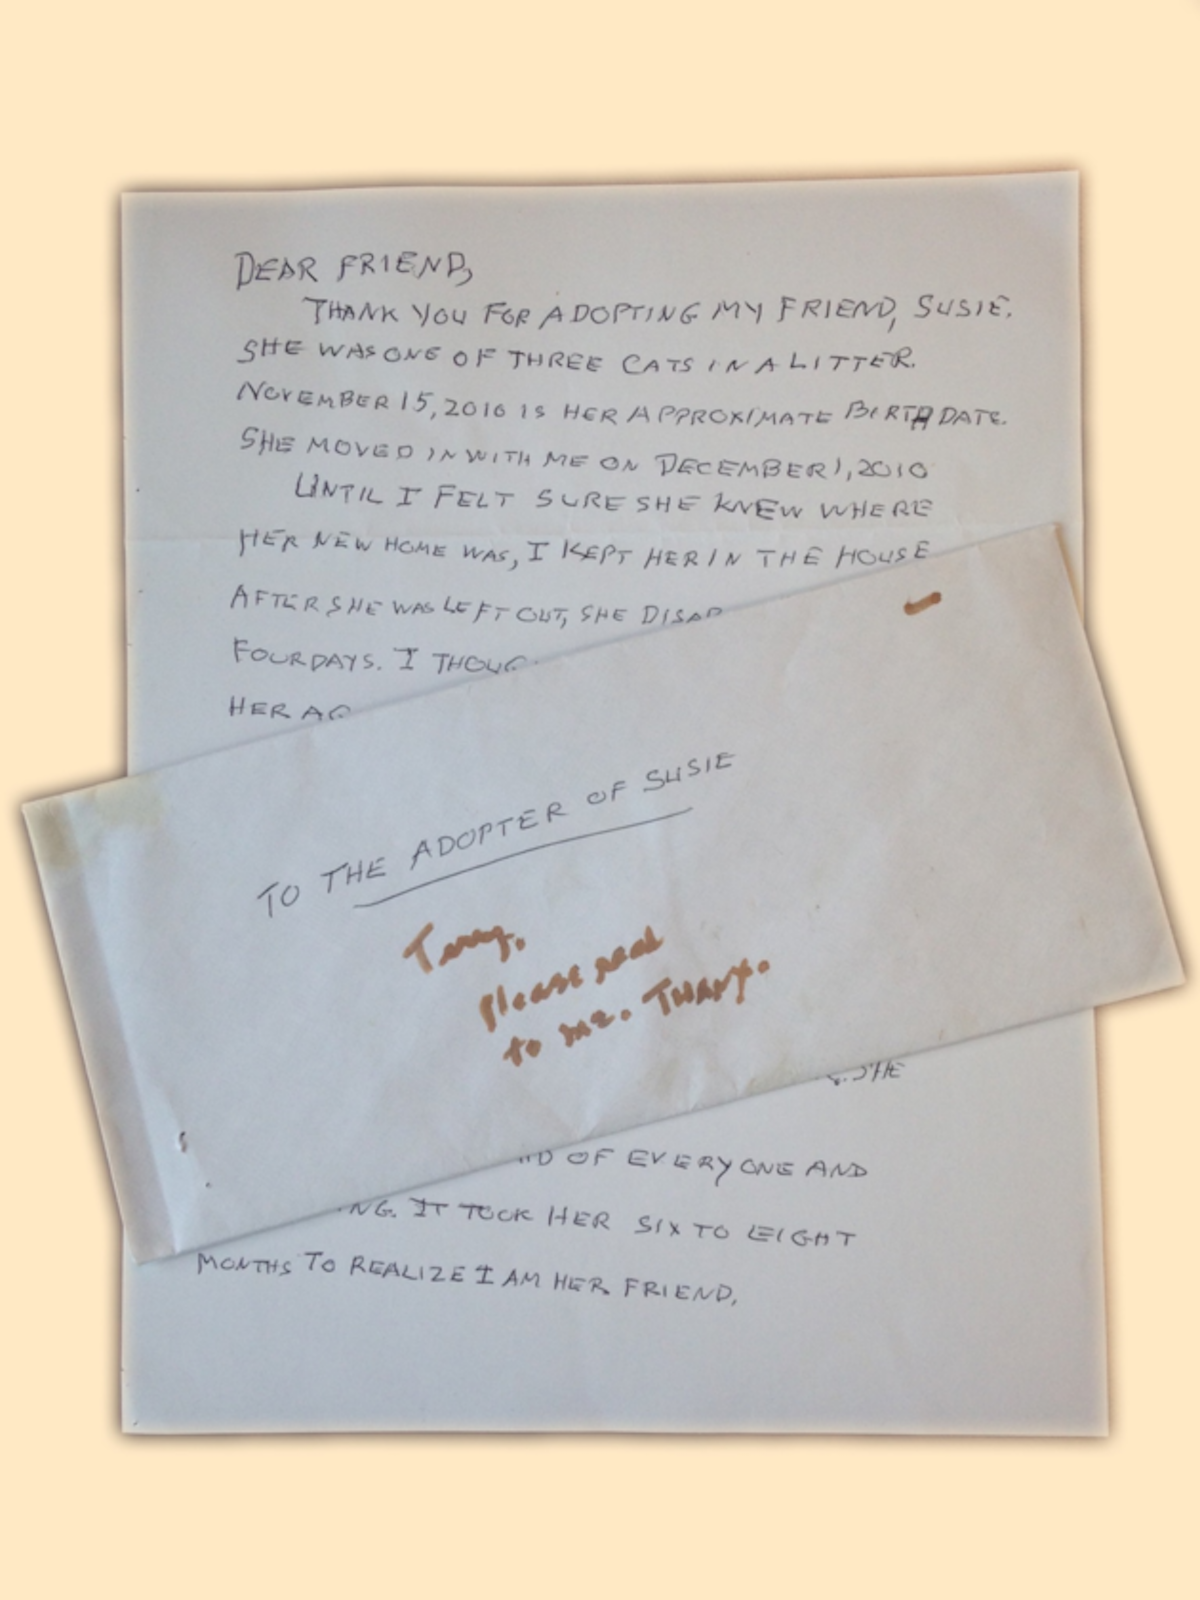 DEAR FRIEND,
THANK YOU FOR ADOPTING MY FRIEND, SUSIE.
SHE WAS ONE OF THREE CATS IN A LITTER.
NOVEMBER 15, 2010 IS HER APPROXIMATE BIRTHDATE.
SHE MOVED IN WITH ME ON DECEMBER 1, 2010
UNTIL I FELT SURE SHE KNEW WHERE
HER NEW HOME WAS, I KEPT HER IN THE HOUSE
AFTER SHE WAS LEFT OUT, SHE
FOUR DAYS. I
HER
TO THE ADOPTER OF SUSIE
please read
to me. THANX.
SHE
OF EVERYONE AND
IT TOOK HER SIX TO EIGHT
MONTHS TO REALIZE I AM HER FRIEND.